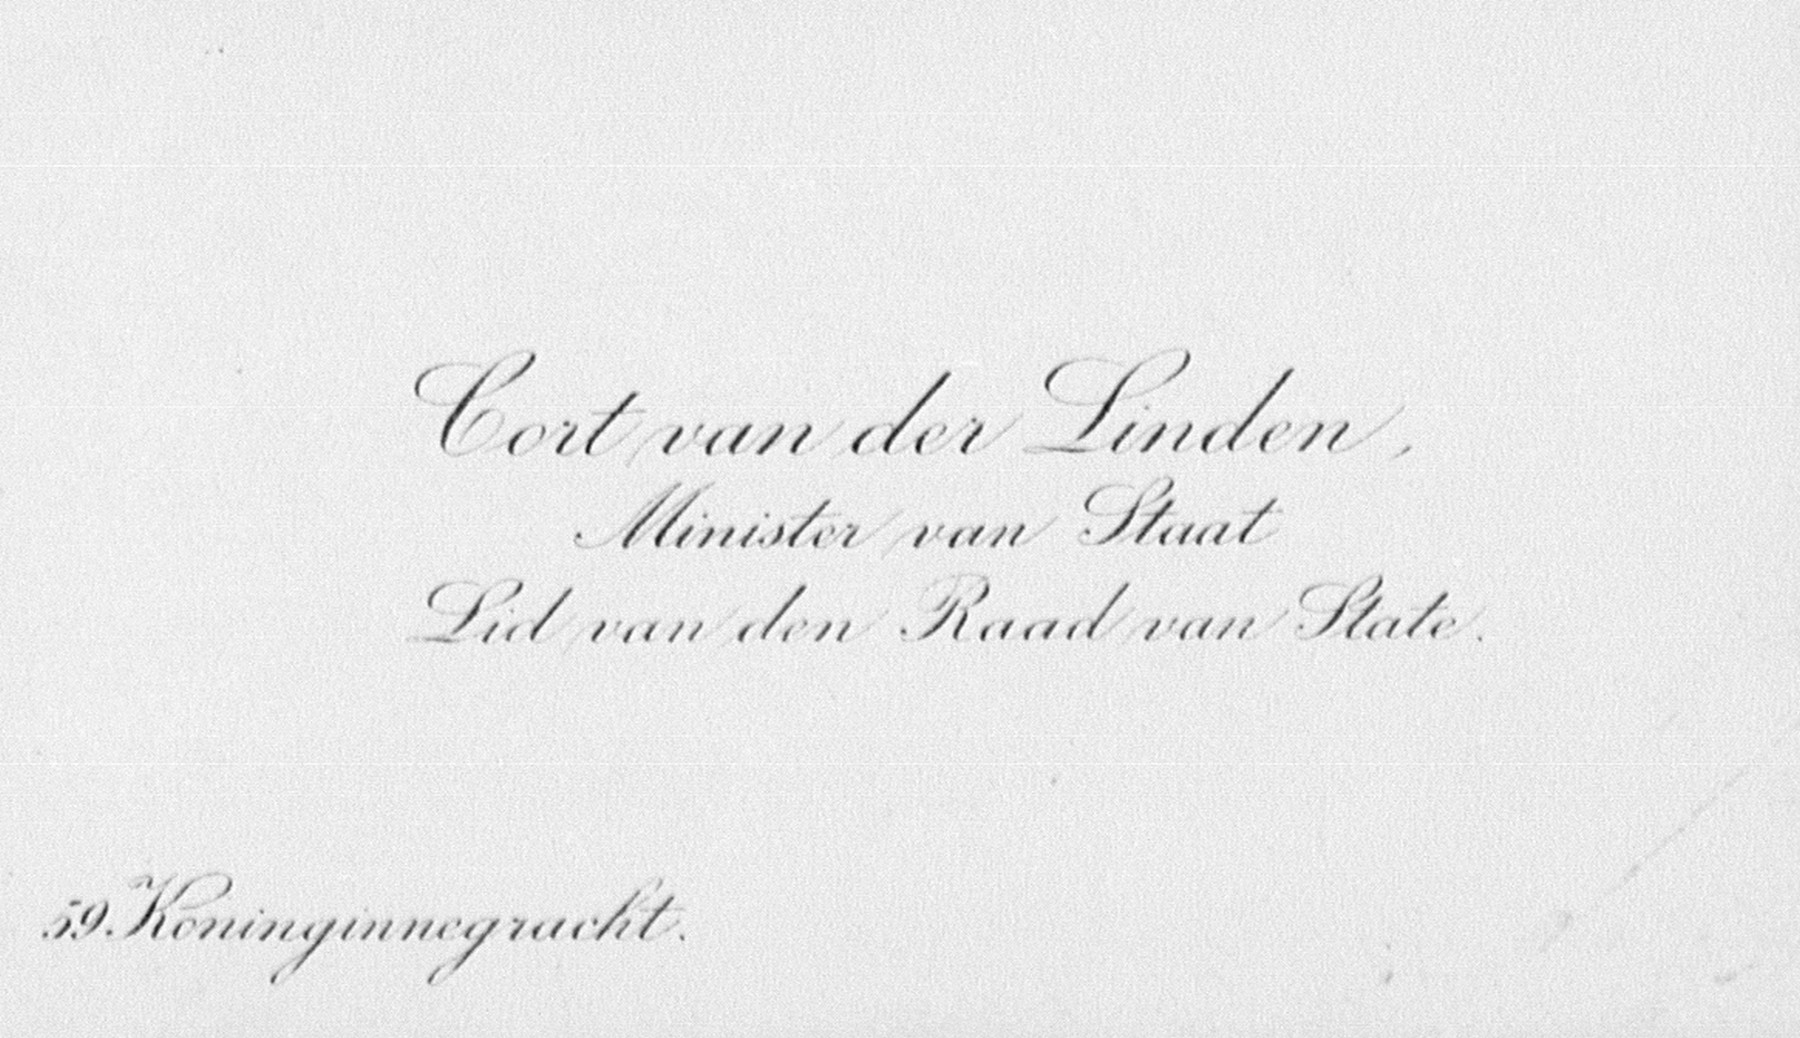 Cort van der Linden,
Minister van Staat
Lid van den Raad van State.
59. Koninginnegracht.